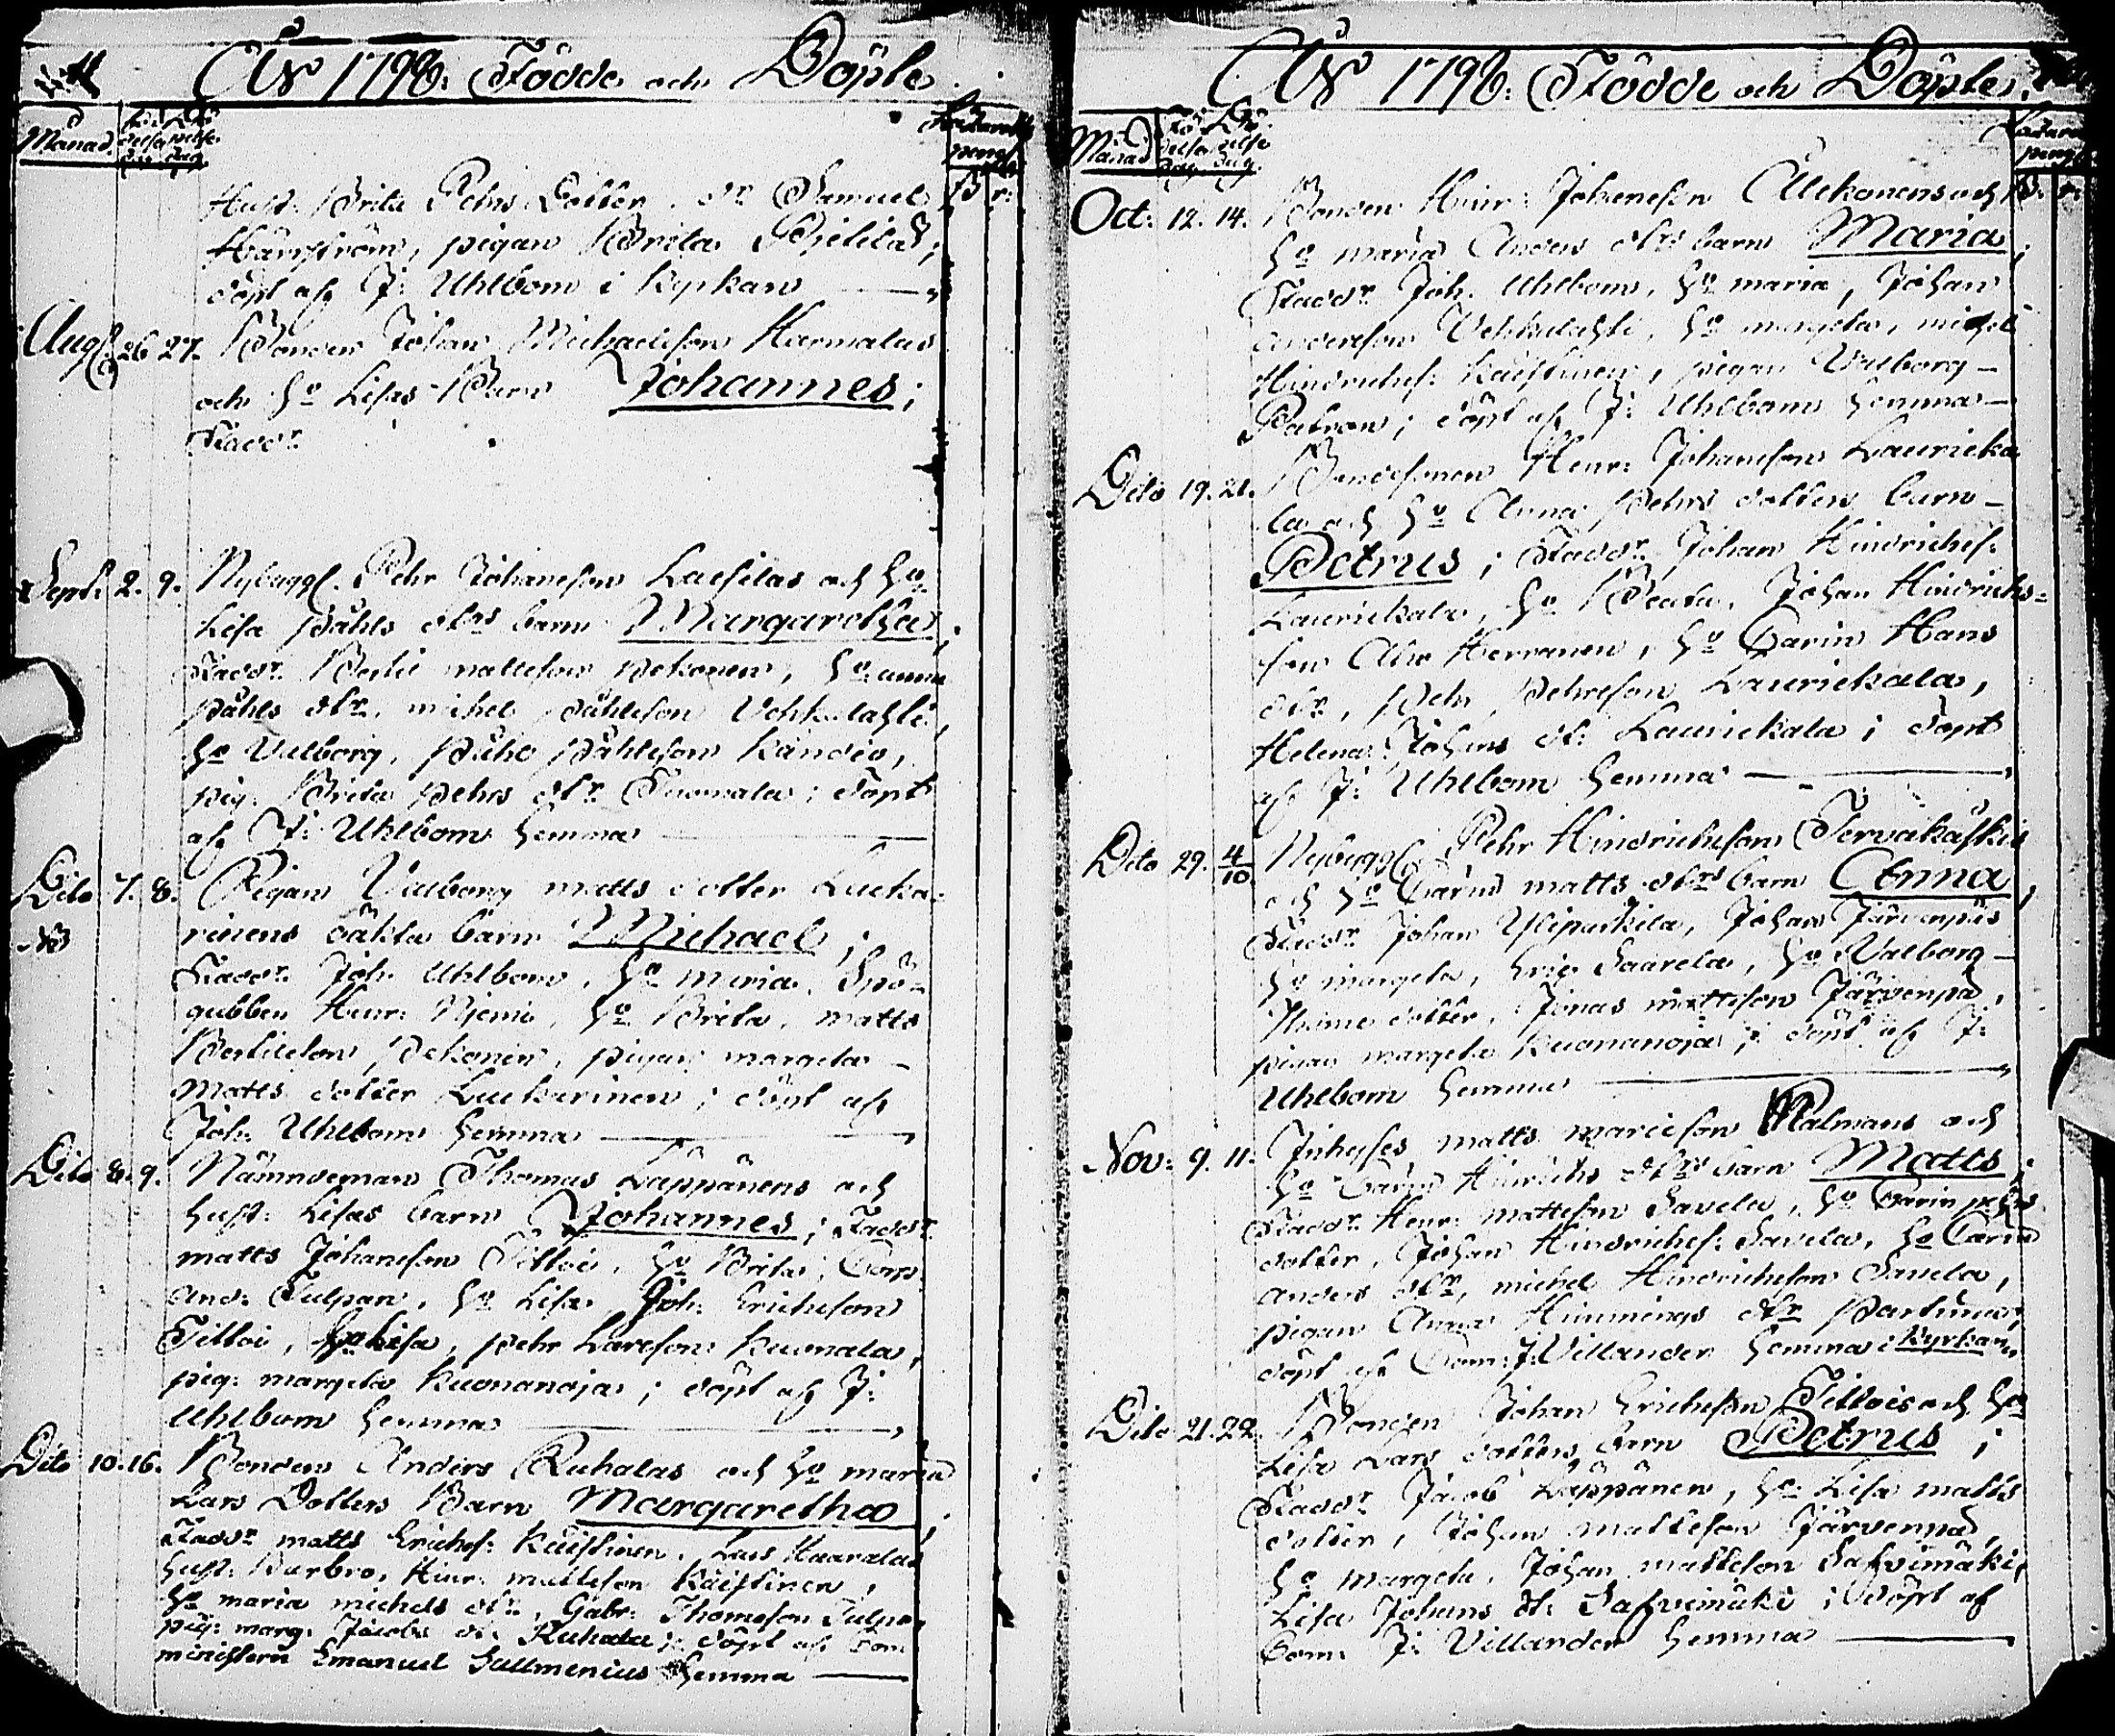 År 1798. Födde och Döpte
Månad.
Hust. Brita Pehrs Dotter. Dr Samuel
pigan Brita
döpt af J: Uhlbom i Kyrkan
Aug 26 27. Bonden Johan Michaelsson Harmalas
och Ho Lisas Barn Johannes;
Faddr
Sept. 2. 9. Nybygg. Pehr Johansson och Ho
Lisa Påhls dtrs barn Margaretha;
Faddr Bertil Mattsson Pekonen, Ho anna
Påhls dtr, michel Påhlsson Vehkalahti,
Ho Valborg, Påhl Påhlsson
pig. Brita Pehrs dtr Tuomala; döpt
af J: Uhlbom hemma
Dito 7. 8. Pigan Valborg matts dotter Lucka-
rinens oäkta barn Michael;
Faddr Joh. Uhlbom, Ho maria,
gubben Henr: Niemi, Ho Brita, matts
Bertilsson Pekonen, pigan margeta
Matts dotter Luckarinen; döpt af
Joh. Uhlbom hemma
Dito 8. 9. Nämndeman Thomas Läppänens och
hust: Lisas barn Johannes; Faddr
matts Johansson Tilloi, Ho Brita, Corp.
And. Tulpan, Ho Lisa, Joh. Erichsson
Tilloi, Ho Lisa, Pehr Larsson Kuonala,
pig: margeta Kuonanoja; döpt af J:
Uhlbom hemma
Dito 10. 16. Bonden Anders Ruhalas och Ho maria
Lars Dotters Barn Margaretha
Faddr matts Erichs: Käistinen, Lars
hust. Barbro, Hinr. mattsson Käistinen,
Ho maria michels dtr, Gabr. Thomsson Tulpan
pig: marg. Jacobs dr Ruhala; döpt af Com
ministern Emanuel hemma
År 1798. Födde och Döpte
Månad
Oct. 12. 14. Bonden Hinr: Johansson och
Ho maria Anders dtrs barn Maria;
Faddr Joh. Uhlbom, Ho maria, Johan
Andersson Vehkalahti, Ho margeta, michel
Hindrichss: Käistinen, pigan Valborg
döpt af J: Uhlbom hemma
Dito 19. 21. Bondesonen Henr: Johansson Lauricka
la och Ho Anna Pehrs dotters barn
Petrus; Faddr Johan Hindrichss:
Laurickala, Ho Beata, Johan Hindrichs-
son Herranen, Ho Carin Hans
dtr, Pehr Pehrsson Laurickala,
Helena Johans dr Laurickala; döpt
af J: Uhlbom hemma
Dito 29. 4/10. Nybygg Pehr Hindrichsson Tervakåski
och Ho Carin matts dtrs barn Anna;
Faddr Johan Yliparkila, Johan Järvenpä
Ho margeta, Eric Saarela, Ho Valborg
dotter, Jonas mattsson Järvenpä,
pigan margeta Kuonanoja; döpt af J:
Uhlbom hemma
Nov: 9. 11. Inhyses matts och
Ho Carin Hinrichs dtrs barn Matts;
Faddr Henr: mattsson Savela, Ho Carin Pehrs
dotter, Johan Hindrichss: Savela, Ho Carin
Anders dtr, michel Hindrichsson Savela,
pigan Anna Hinnings dtr
döpt af Com: J: Villander hemma i Kyrkan
Dito 21. 22. Bonden Johan Erichsson Tillois och Ho
Lisa Lars dotters barn Petrus;
Faddr Jacob Läppänen, Ho Lisa matts
dotter, Johan mattsson Järvenpä,
Ho margeta, Johan mattsson Safvimäki,
Lisa Johans dr Safvimäki; döpt af
Com: J: Villander hemma